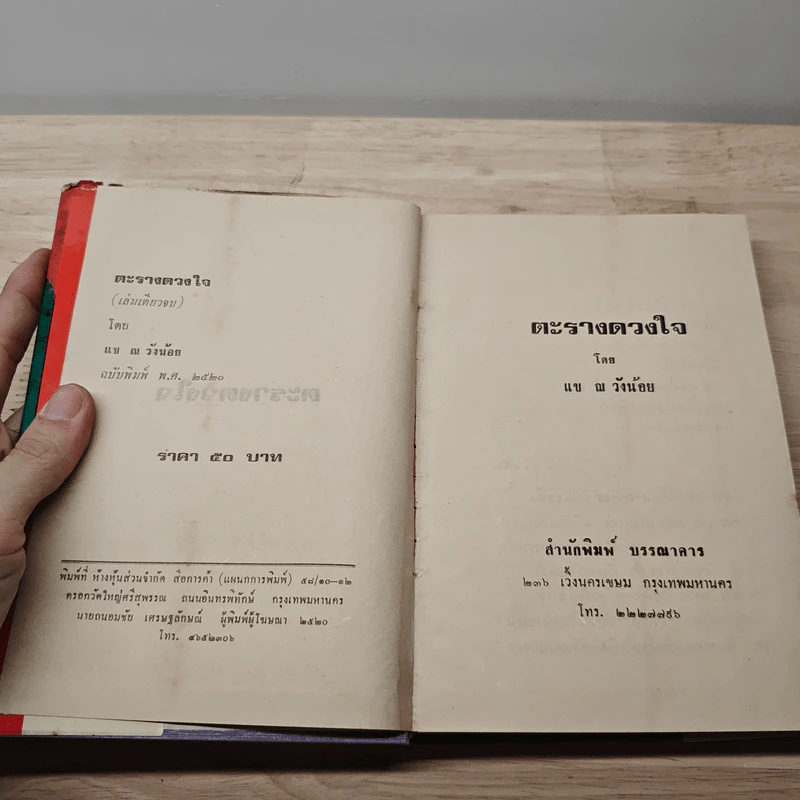 ตะรางดวงใจ
(เล่มเดียวจบ)
โดย
แข ณ วังน้อย
ฉบับพิมพ์ พ.ศ. ๒๕๒๐
ราคา ๕๐ บาท
พิมพ์ที่ ห้างหุ้นส่วนจำกัด สื่อการค้า (แผนกการพิมพ์) ๕๘/๑๐–๑๒
ตรอกวัดใหญ่ศรีสุพรรณ ถนนอินทรพิทักษ์ กรุงเทพมหานคร
นายถนอมชัย เศรษฐลักษณ์ ผู้พิมพ์ผู้โฆษณา ๒๕๒๐
โทร. ๔๖๕๒๓๐๖
ตะรางดวงใจ
โดย
แข ณ วังน้อย
สำนักพิมพ์ บรรณาคาร
๒๓๖ เวิ้งนครเขษม กรุงเทพมหานคร
โทร. ๒๒๒๗๗๙๖